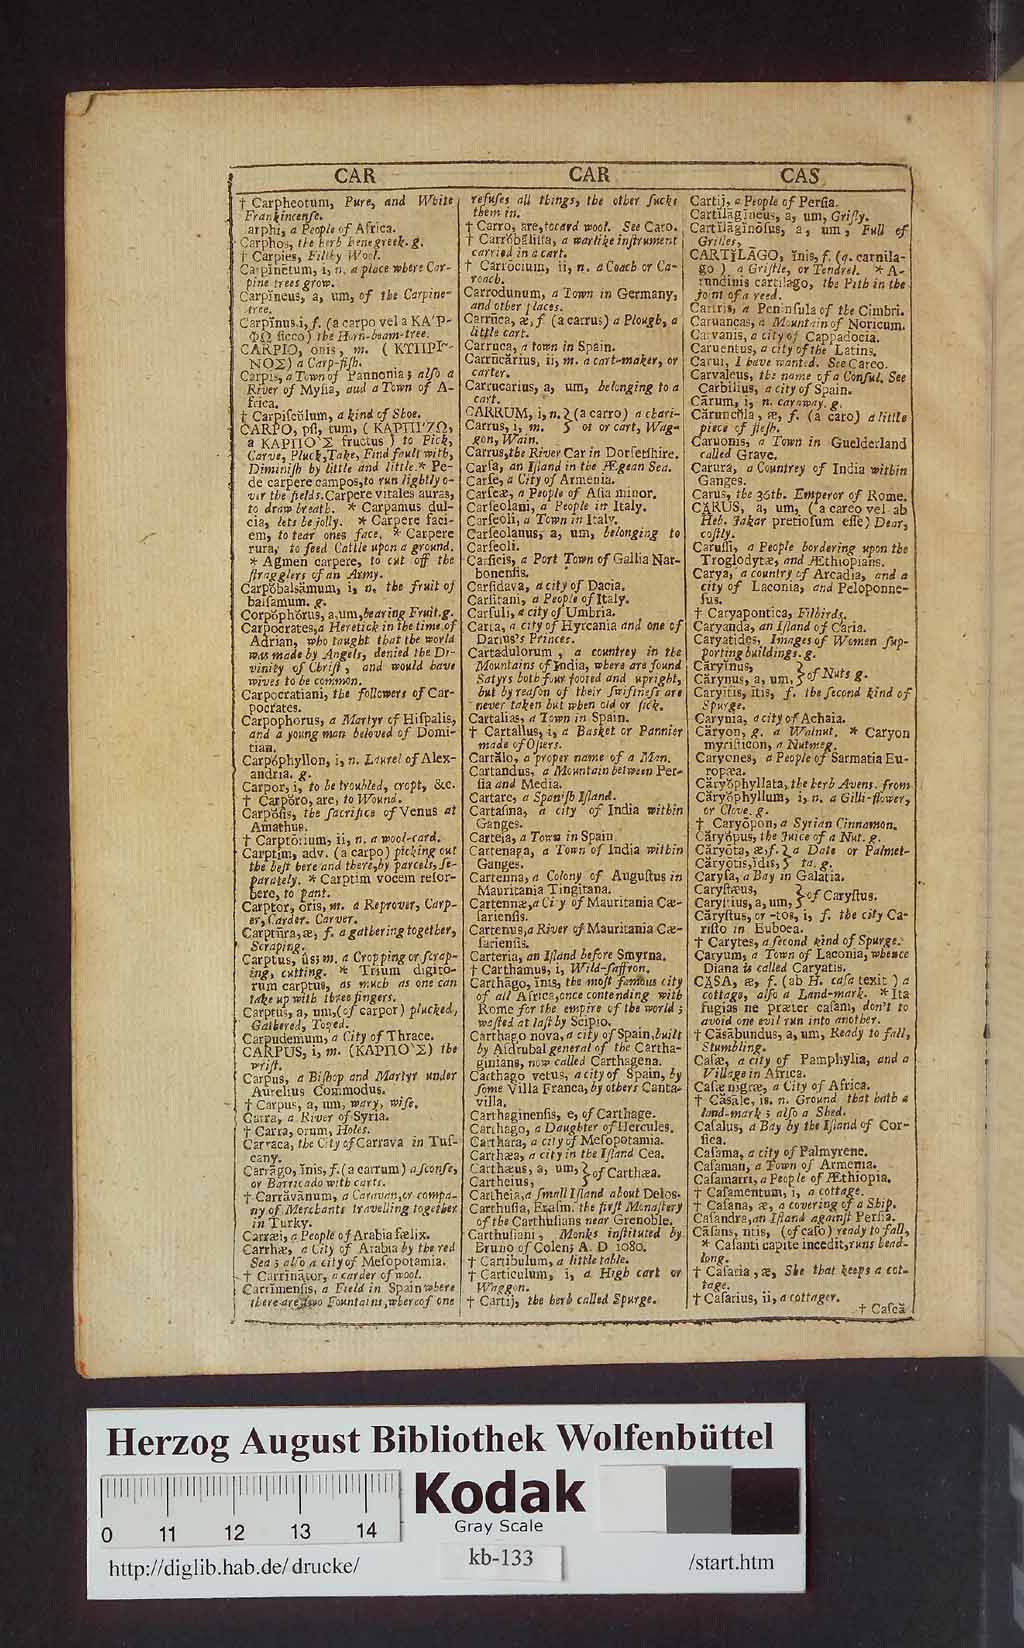 CAR
CAR
CAS
† Carpheotum, Pure, and White
Frankincenſe.
arphi, a People of Africa.
Carphos, the herb benegreek. g.
† Carpies, Filthy Wool.
Carpinētum, i, n. a place where Car-
pine trees grow.
Carpĭneus, a, um, of the Carpine-
tree.
Carpĭnus, i, f. (a carpo vel a ΚΑΡ-
ΦΩ ſicco) the Horn-beam-tree.
CARPIO, ōnis, m. ( ΚΥΠΡΙ-
ΝΟΣ) a Carp-fiſh.
Carpis, a Town of Pannonia; alſo a
River of Myſia, and a Town of A-
frica.
† Carpiſcŭlum, a kind of Shoe.
CARPO, pſi, tum, ( ΚΑΡΠΙΖΩ,
a ΚΑΡΠΟΣ fructus ) to Pick,
Carve, Pluck, Take, Find fault with,
Diminiſh by little and little. * Pe-
de carpere campos, to run lightly o-
ver the fields. Carpere vitales auras,
to draw breath. * Carpamus dul-
cia, lets be jolly. * Carpere faci-
em, to tear ones face. * Carpere
rura, to feed Cattle upon a ground.
* Agmen carpere, to cut off the
ſtragglers of an Army.
Carpŏbalsămum, i, n. the fruit of
balſamum. g.
Corpŏphŏrus, a, um, bearing Fruit. g.
Carpocrates, a Heretick in the time of
Adrian, who taught that the world
was made by Angels, denied the Di-
vinity of Chriſt, and would have
wives to be common.
Carpocratiani, the followers of Car-
pocrates.
Carpophorus, a Martyr of Hiſpalis,
and a young man beloved of Domi-
tian.
Carpŏphyllon, i, n. Laurel of Alex-
andria. g.
Carpor, i, to be troubled, cropt, &c.
† Carpŏro, are, to Wound.
Carpōſis, the ſacrifice of Venus at
Amathus.
† Carptōrium, ii, n. a wool-card.
Carptim, adv. (a carpo) picking out
the beſt here and there, by parcels, ſe-
parately. * Carptim vocem reſor-
bere, to pant.
Carptor, ōris, m. a Reprover, Carp-
er, Carder. Carver.
Carptūra, æ, f. a gathering together,
Scraping.
Carptus, ûs; m. a Cropping or ſcrap-
ing, cutting. * Trium digitō-
rum carptus, as much as one can
take up with three fingers.
Carptus, a, um, (of carpor) plucked,
Gathered, Tozed.
Carpudemum, a City of Thrace.
CARPUS, i, m. (ΚΑΡΠΟΣ) the
wriſt.
Carpus, a Biſhop and Martyr under
Aurelius Commodus.
† Carpus, a, um, wary, wiſe.
Carra, a River of Syria.
† Carra, orum, Holes.
Carraca, the City of Carrava in Tuſ-
cany.
Carrāgo, ĭnis, f. (a carrum) a ſconſe,
or Barricado with carts.
† Carrăvānum, a Caravan, or compa-
ny of Merchants travelling together
in Turky.
Carræi, a People of Arabia fælix.
Carrhæ, a City of Arabia by the red
Sea; alſo a city of Meſopotamia.
† Carrinător, a carder of wool.
Carrinenſis, a Field in Spain where
there are two Fountains, whereof one
refuſes all things, the other ſucks
them in.
† Carro, are, to card wool. See Caro.
† Carrŏbăliſta, a warlike inſtrument
carried in a cart.
† Carrŏcium, ii, n. a Coach or Ca-
roach.
Carrodunum, a Town in Germany,
and other places.
Carrūca, æ, f (a carrus) a Plough, a
little cart.
Carruca, a town in Spain.
Carrūcārius, ii, m. a cart-maker, or
carter.
Carrucarius, a, um, belonging to a
cart.
CARRUM, i, n. } (a carro) a chari-
Carrus, i, m. } ot or cart, Wag-
gon, Wain.
Carrus, the River Car in Dorſetſhire.
Carſa, an Iſland in the Ægean Sea.
Carſe, a City of Armenia.
Carſeæ, a People of Aſia minor.
Carſeolani, a People in Italy.
Carſeoli, a Town in Italy.
Carſeolanus, a, um, belonging to
Carſeoli.
Carſicis, a Port Town of Gallia Nar-
bonenſis.
Carſidava, a city of Dacia.
Carſitani, a People of Italy.
Carſuli, a city of Umbria.
Carta, a city of Hyrcania and one of
Darius's Princes.
Cartadulorum, a countrey in the
Mountains of India, where are found
Satyrs both four footed and upright,
but by reaſon of their ſwiftneſs are
never taken but when old or ſick.
Cartalias, a Town in Spain.
† Cartallus, i, a Basket or Pannier
made of Oſiers.
Cartălo, a proper name of a Man.
Cartandus, a Mountain between Per-
ſia and Media.
Cartare, a Spaniſh Iſland.
Cartaſina, a city of India within
Ganges.
Carteia, a Town in Spain
Cartenaga, a Town of India within
Ganges.
Cartenna, a Colony of Auguſtus in
Mauritania Tingitana.
Cartennæ, a City of Mauritania Cæ-
ſarienſis.
Cartenus, a River of Mauritania Cæ-
ſarienſis.
Carteria, an Iſland before Smyrna.
† Carthamus, i, Wild-ſaffron.
Carthāgo, ĭnis, the moſt famous city
of all Africa, once contending with
Rome for the empire of the world;
waſted at laſt by Scipio.
Carthago nova, a city of Spain, built
by Aſdrubal general of the Cartha-
ginians, now called Carthagena.
Carthago vetus, a city of Spain, by
ſome Villa Franca, by others Canta-
villa.
Carthaginenſis, e, of Carthage.
Carthago, a Daughter of Hercules.
Carthara, a city of Meſopotamia.
Carthæa, a city in the Iſland Cea.
Carthæus, a, um, } of Carthæa.
Cartheius, }
Cartheia, a ſmall Iſland about Delos.
Carthuſia, Eraſm. the firſt Monaſtery
of the Carthuſians near Grenoble.
Carthuſiani, Monks inſtituted by
Bruno of Colen; A. D 1080.
† Cartibulum, a little table.
† Carticulum, i, a High cart or
Waggon.
† Cartij, the herb called Spurge.
Cartij, a People of Perſia.
Cartilāgineus, a, um, Griſly.
Cartĭlāginōſus, a, um, Full of
Griſles,
CARTĬLĀGO, ĭnis, f. (q. carnila-
go ) a Griſtle, or Tendrel. * A-
rundinis cartilago, the Pith in the
joint of a reed.
Cartris, a Peninſula of the Cimbri.
Caruancas, a Mountain of Noricum.
Carvanis, a city of Cappadocia.
Caruentus, a city of the Latins.
Carui, I have wanted. See Careo.
Carvaleus, the name of a Conſul. See
Carbilius, a city of Spain.
Cărum, i, n. caraway. g.
Căruncŭla, æ, f. (a caro) a little
piece of fleſh.
Caruonis, a Town in Guelderland
called Grave.
Carura, a Countrey of India within
Ganges.
Carus, the 36th. Emperor of Rome.
CĀRUS, a, um, (a careo vel ab
Heb. Jakar pretioſum eſſe) Dear,
coſtly.
Caruſſi, a People bordering upon the
Troglodytæ, and Æthiopians.
Carya, a country of Arcadia, and a
city of Laconia, and Peloponne-
ſus.
† Caryapontica, Filbirds.
Caryanda, an Iſland of Caria.
Caryatides, Images of Women ſup-
porting buildings. g.
Căryĭnus, } of Nuts g.
Cărynus, a, um, }
Caryitis, itis, f. the ſecond kind of
Spurge.
Carynia, a city of Achaia.
Căryon, g. a Walnut. * Caryon
myriſticon, a Nutmeg.
Caryones, a People of Sarmatia Eu-
ropæa.
Căryŏphyllata, the herb Avens. from
Căryŏphyllum, i, n. a Gilli-flower,
or Clove. g.
† Caryŏpon, a Syrian Cinnamon.
Căryŏpus, the Juice of a Nut. g.
Căryōta, æ, f. } a Date or Palmet-
Căryōtis, ĭdis, } ta. g.
Caryſa, a Bay in Galatia.
Caryſtæus, } of Caryſtus.
Caryſtius, a, um, }
Căryſtus, or -tos, i, f. the city Ca-
riſto in Euboea.
† Carytes, a ſecond kind of Spurge.
Caryum, a Town of Laconia, whence
Diana is called Caryatis.
CĂSA, æ, f. (ab H. caſa texit ) a
cottage, alſo a Land-mark. * Ita
fugias ne præter caſam, don't to
avoid one evil run into another.
† Căsābundus, a, um, Ready to fall,
Stumbling.
Caſæ, a city of Pamphylia, and a
Village in Africa.
Caſæ nigræ, a City of Africa.
† Căsāle, is. n. Ground that hath a
land-mark; alſo a Shed.
Caſalus, a Bay by the Iſland of Cor-
ſica.
Caſama, a city of Palmyrene.
Caſaman, a Town of Armenia.
Caſamarri, a People of Æthiopia.
† Caſamentum, i, a cottage.
† Caſana, æ, a covering of a Ship.
Caſandra, an Iſland againſt Perſia.
Căſans, ntis, (of caſo) ready to fall,
* Caſanti capite incedit, runs head-
long.
† Caſaria, æ, She that keeps a cot-
tage.
† Caſarius, ii, a cottager.
† Caſcă
Herzog August Bibliothek Wolfenbüttel
Kodak
Gray Scale
0 11 12 13 14
http://diglib.hab.de/ drucke/
kb-133
/start.htm